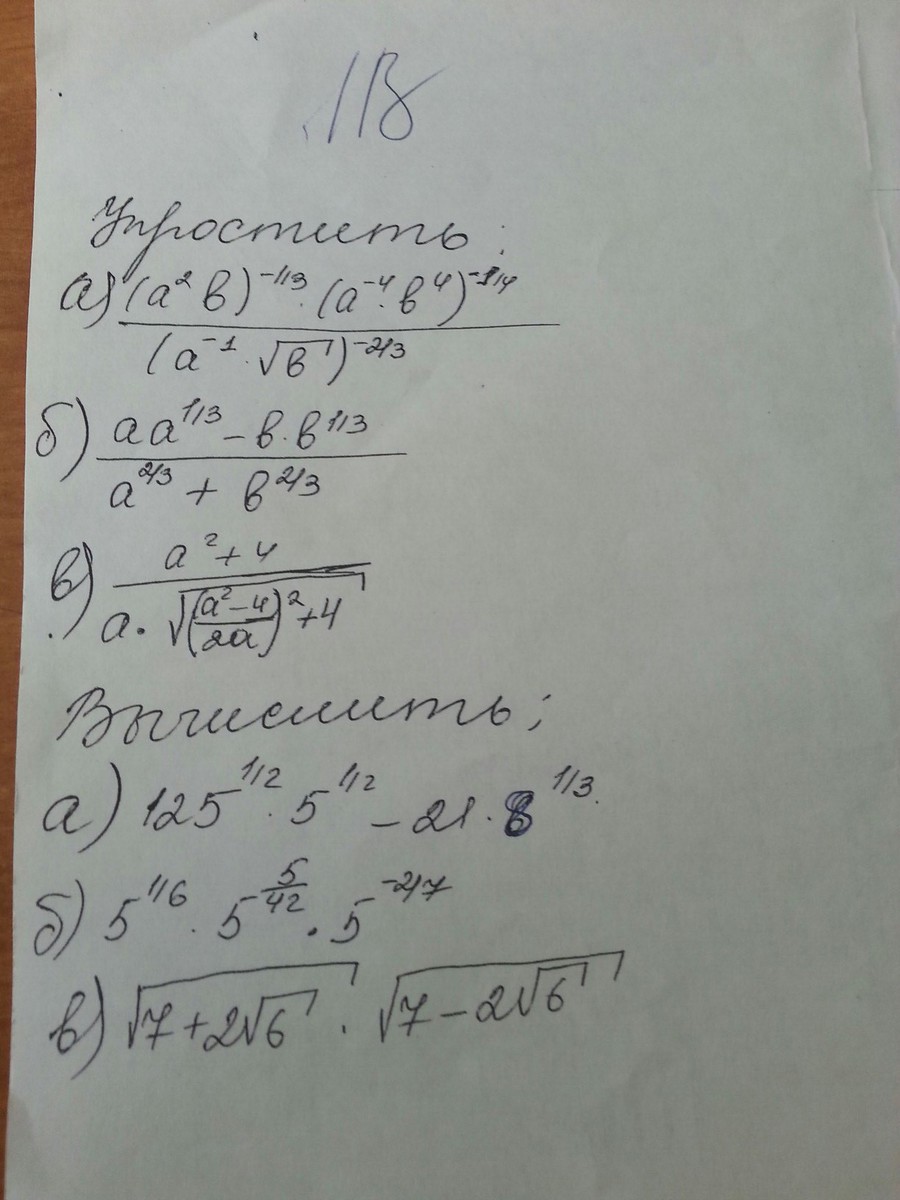 1В
Упростить:
а) (a² b)^-1/3 · (a^-4 · b^4)^-1/4 / (a^-1 · √b)^-2/3
б) a a^1/3 - b · b^1/3 / a^2/3 + b^2/3
в) a² + 4 / a · √((a² - 4 / 2a)² + 4)
Вычислить:
а) 125^1/2 · 5^1/2 - 21 · 8^1/3.
б) 5^1/6 · 5^5/42 · 5^-2/7
в) √(7 + 2√6) · √(7 - 2√6)